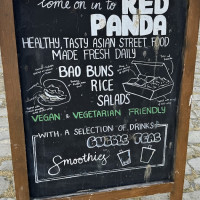 come on in to RED
PANDA
HEALTHY, TASTY ASIAN STREET FOOD
MADE FRESH DAILY
BAO BUNS
RICE
SALADS
VEGAN & VEGETARIAN FRIENDLY
WITH A SELECTION OF DRINKS
BUBBLE TEAS
Smoothies